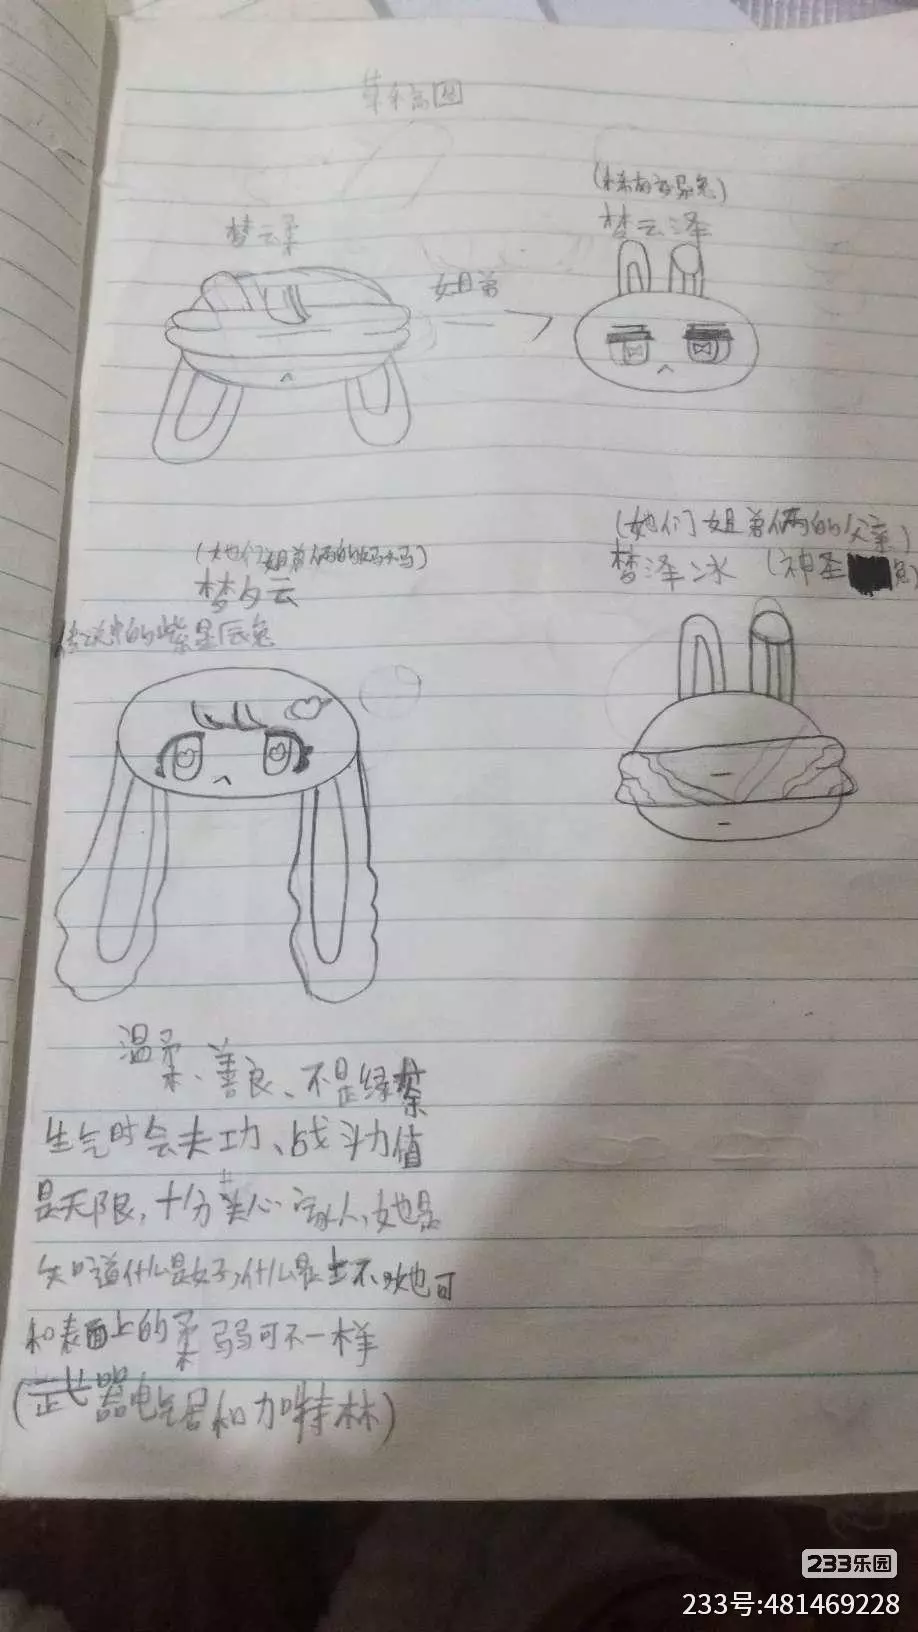 草稿图
梦云柔
姐弟
(稀有
兔)
梦云泽
(她们姐弟俩的妈妈)
梦夕云
传说中的紫星辰兔
(她们姐弟俩的父亲)
梦泽冰 (神圣 兔)
温柔、善良、不是绿茶
生气时会夫工力、战斗力值
是无限,十分关心家人,她是
知道什么是女子,什么是 不 她可
和表面上的柔弱可不一样
(武器电 和加特林)
233乐园
233号:481469228